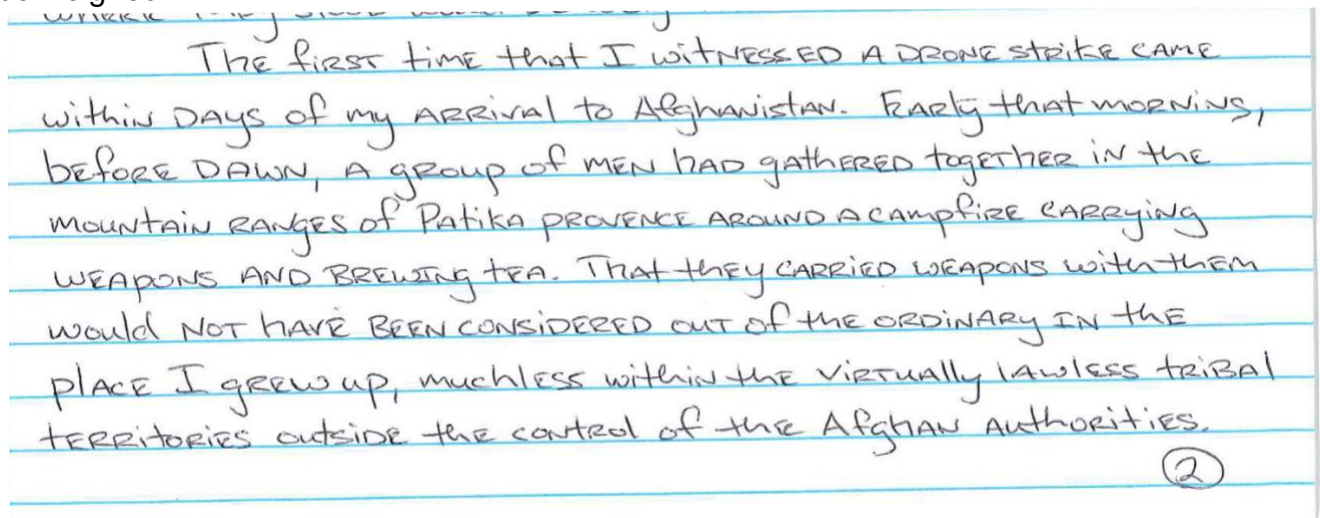 The first time that I witnessed a drone strike came
within days of my arrival to Afghanistan. Early that morning,
before dawn, a group of men had gathered together in the
mountain ranges of Patika provence around a campfire carrying
weapons and brewing tea. That they carried weapons with them
would not have been considered out of the ordinary in the
place I grew up, muchless within the virtually lawless tribal
territories outside the control of the Afghan authorities.
2